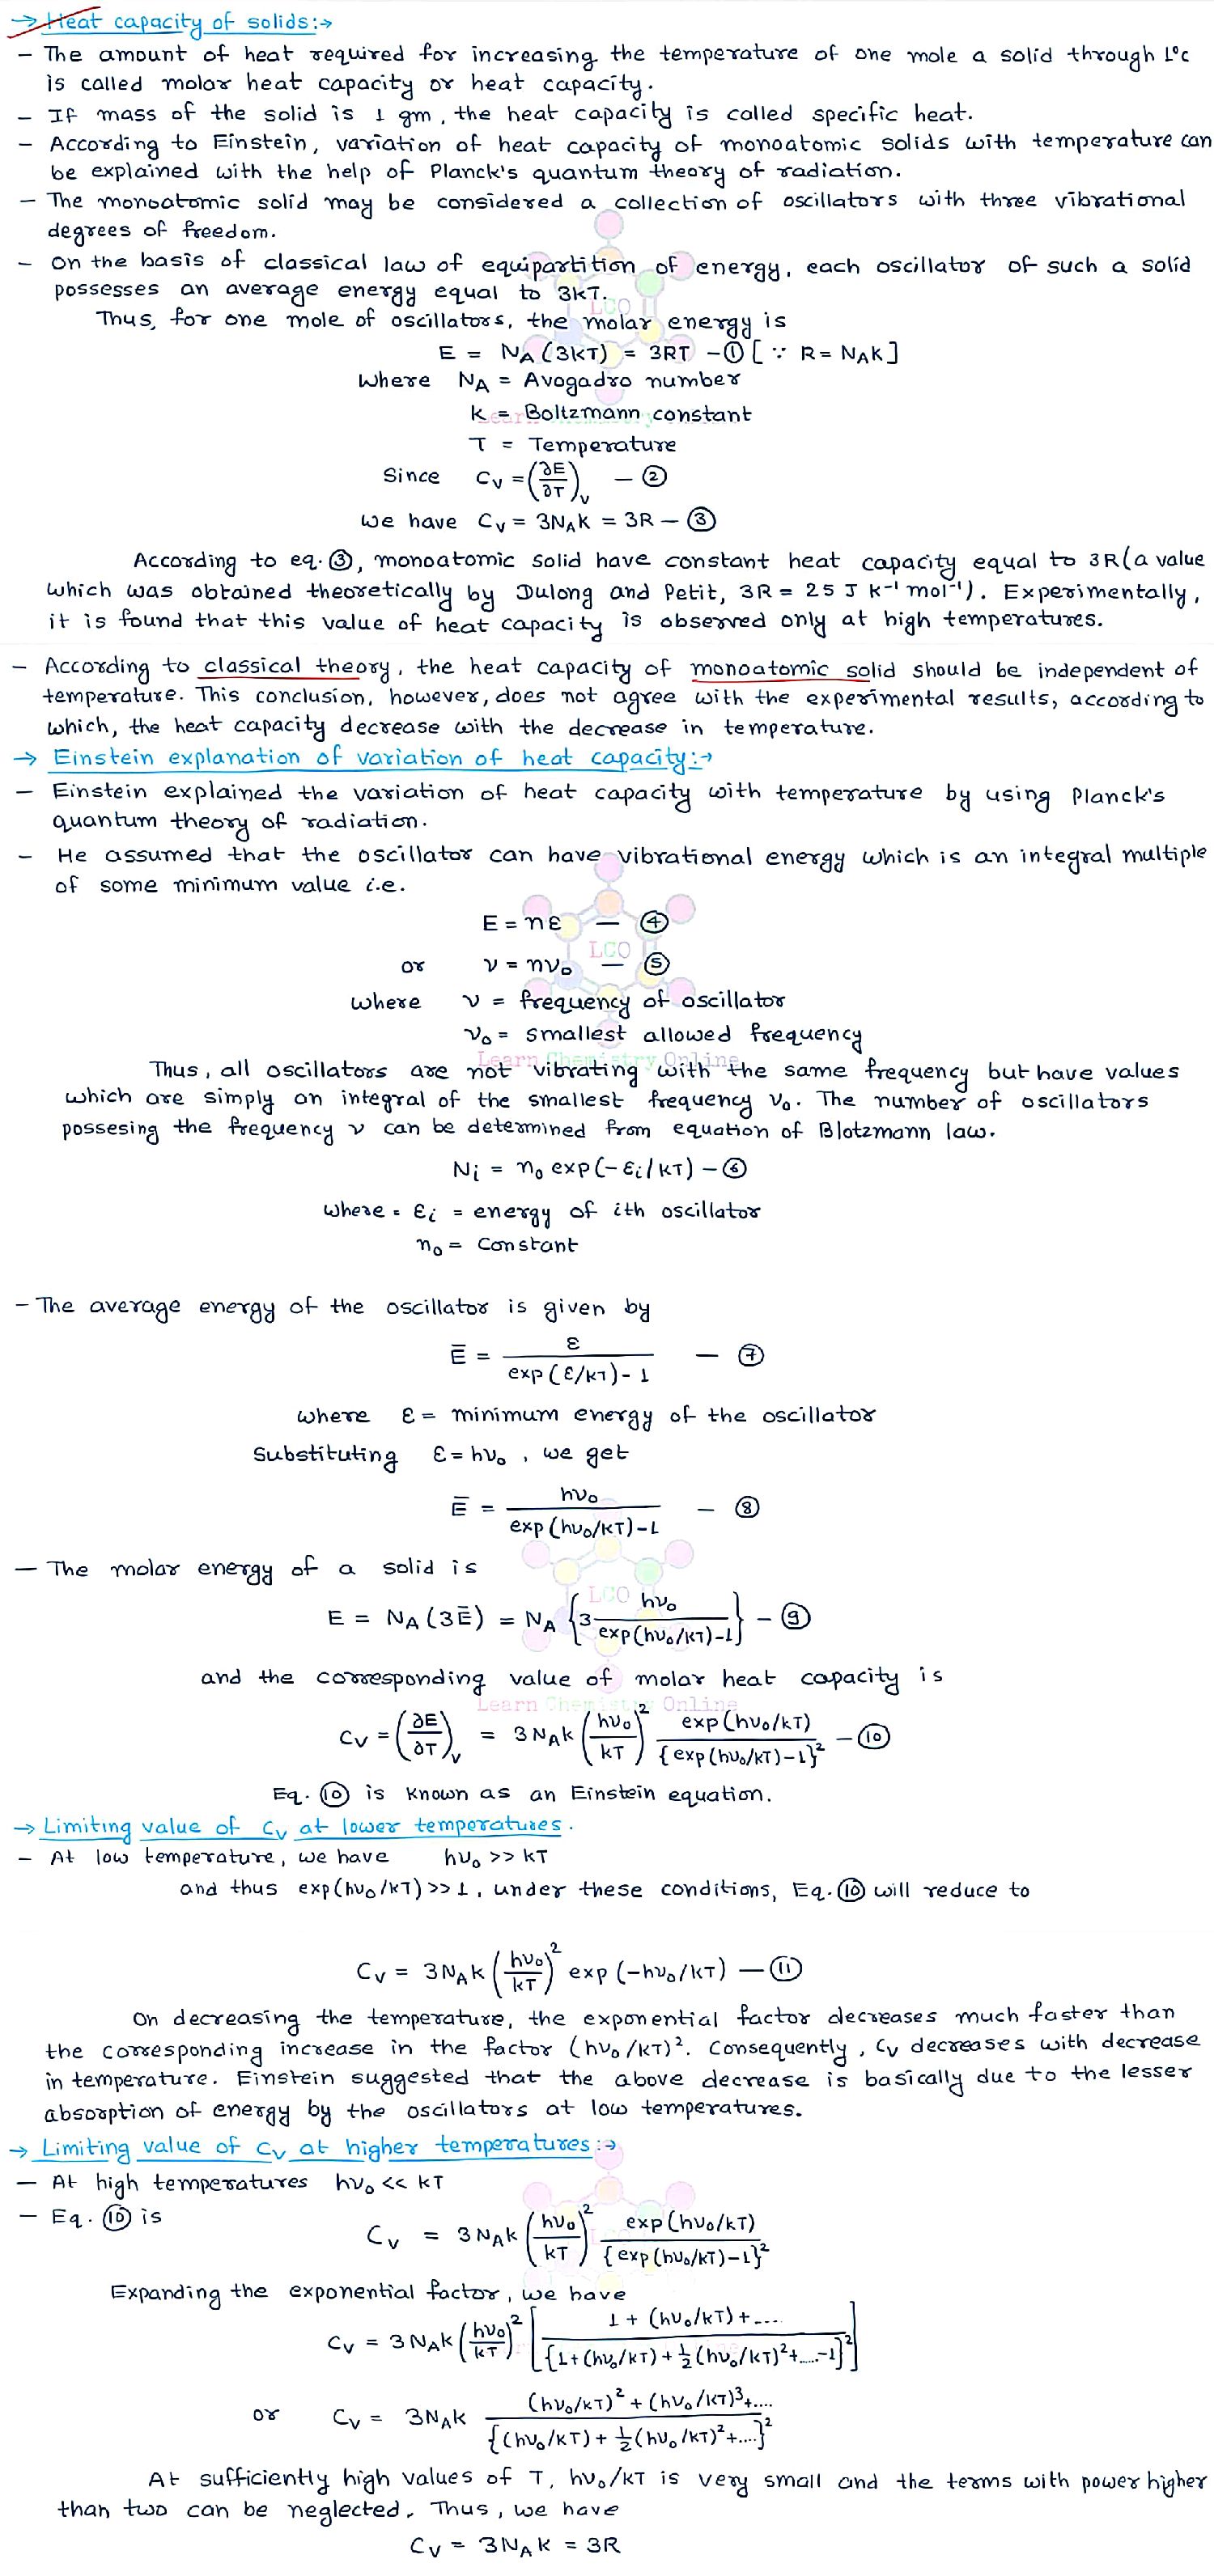 → Heat capacity of solids:→
- The amount of heat required for increasing the temperature of one mole a solid through 1°c
is called molar heat capacity or heat capacity.
- If mass of the solid is 1 gm, the heat capacity is called specific heat.
- According to Einstein, variation of heat capacity of monoatomic solids with temperature can
be explained with the help of Planck's quantum theory of radiation.
- The monoatomic solid may be considered a collection of oscillators with three vibrational
degrees of freedom.
- On the basis of classical law of equipartition of energy, each oscillator of such a solid
possesses an average energy equal to 3kT.
LCO
Thus, for one mole of oscillators, the molar energy is
E = N_A (3kT) = 3RT - ① [ ∵ R = N_A k ]
Where N_A = Avogadro number
k = Boltzmann constant
Learn Chemistry Online
T = Temperature
Since C_V = (∂E/∂T)_V - ②
We have C_V = 3N_A k = 3R - ③
According to eq. ③, monoatomic solid have constant heat capacity equal to 3R (a value
which was obtained theoretically by Dulong and Petit, 3R = 25 J K⁻¹ mol⁻¹). Experimentally,
it is found that this value of heat capacity is observed only at high temperatures.
- According to classical theory, the heat capacity of monoatomic solid should be independent of
temperature. This conclusion, however, does not agree with the experimental results, according to
which, the heat capacity decrease with the decrease in temperature.
→ Einstein explanation of variation of heat capacity:→
- Einstein explained the variation of heat capacity with temperature by using Planck's
quantum theory of radiation.
- He assumed that the oscillator can have vibrational energy which is an integral multiple
of some minimum value i.e.
E = nε - ④
LCO
or ν = nν₀ - ⑤
where ν = frequency of oscillator
ν₀ = smallest allowed frequency
Learn Chemistry Online
Thus, all oscillators are not vibrating with the same frequency but have values
which are simply an integral of the smallest frequency ν₀. The number of oscillators
possesing the frequency ν can be determined from equation of Blotzmann law.
N_i = n₀ exp(-ε_i/kT) - ⑥
where = ε_i = energy of ith oscillator
n₀ = Constant
- The average energy of the oscillator is given by
Ē = ε / (exp(ε/kT) - 1) - ⑦
where ε = minimum energy of the oscillator
Substituting ε = hν₀, we get
Ē = hν₀ / (exp(hν₀/kT) - 1) - ⑧
- The molar energy of a solid is
LCO
E = N_A (3Ē) = N_A {3 hν₀ / (exp(hν₀/kT) - 1)} - ⑨
and the corresponding value of molar heat capacity is
Learn Chemistry Online
C_V = (∂E/∂T)_V = 3N_A k (hν₀/kT)² exp(hν₀/kT) / {exp(hν₀/kT) - 1}² - ⑩
Eq. ⑩ is known as an Einstein equation.
→ Limiting value of C_V at lower temperatures.
- At low temperature, we have hν₀ >> kT
and thus exp(hν₀/kT) >> 1, under these conditions, Eq. ⑩ will reduce to
C_V = 3N_A k (hν₀/kT)² exp(-hν₀/kT) - ⑪
On decreasing the temperature, the exponential factor decreases much faster than
the corresponding increase in the factor (hν₀/kT)². Consequently, C_V decreases with decrease
in temperature. Einstein suggested that the above decrease is basically due to the lesser
absorption of energy by the oscillators at low temperatures.
→ Limiting value of C_V at higher temperatures:→
- At high temperatures hν₀ << kT
- Eq. ⑩ is
C_V = 3N_A k (hν₀/kT)² exp(hν₀/kT) / {exp(hν₀/kT) - 1}²
Expanding the exponential factor, we have
C_V = 3N_A k (hν₀/kT)² [ 1 + (hν₀/kT) + .... / {1 + (hν₀/kT) + ½(hν₀/kT)² + .... - 1}² ]
or C_V = 3N_A k (hν₀/kT)² + (hν₀/kT)³ + .... / {(hν₀/kT) + ½(hν₀/kT)² + ....}²
At sufficiently high values of T, hν₀/kT is very small and the terms with power higher
than two can be neglected. Thus, we have
C_V = 3N_A k = 3R